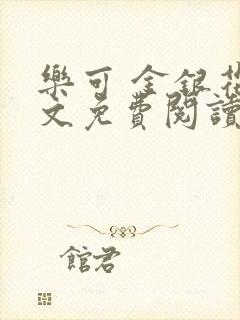 樂可 金銀花
文免費閱讀
館君